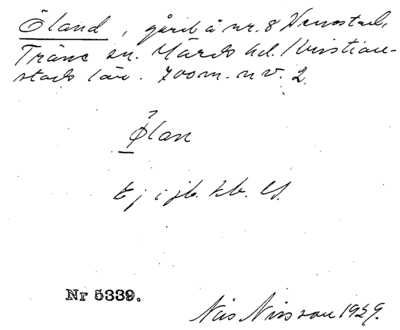 Öland, gård å nr. 8 
Träne sn. Gärds hd. Kristian-
stads län. 700 m. n v. 2.
Ölan
Ej i jb.
Nr 5339.
Nils Nilsson 1929.